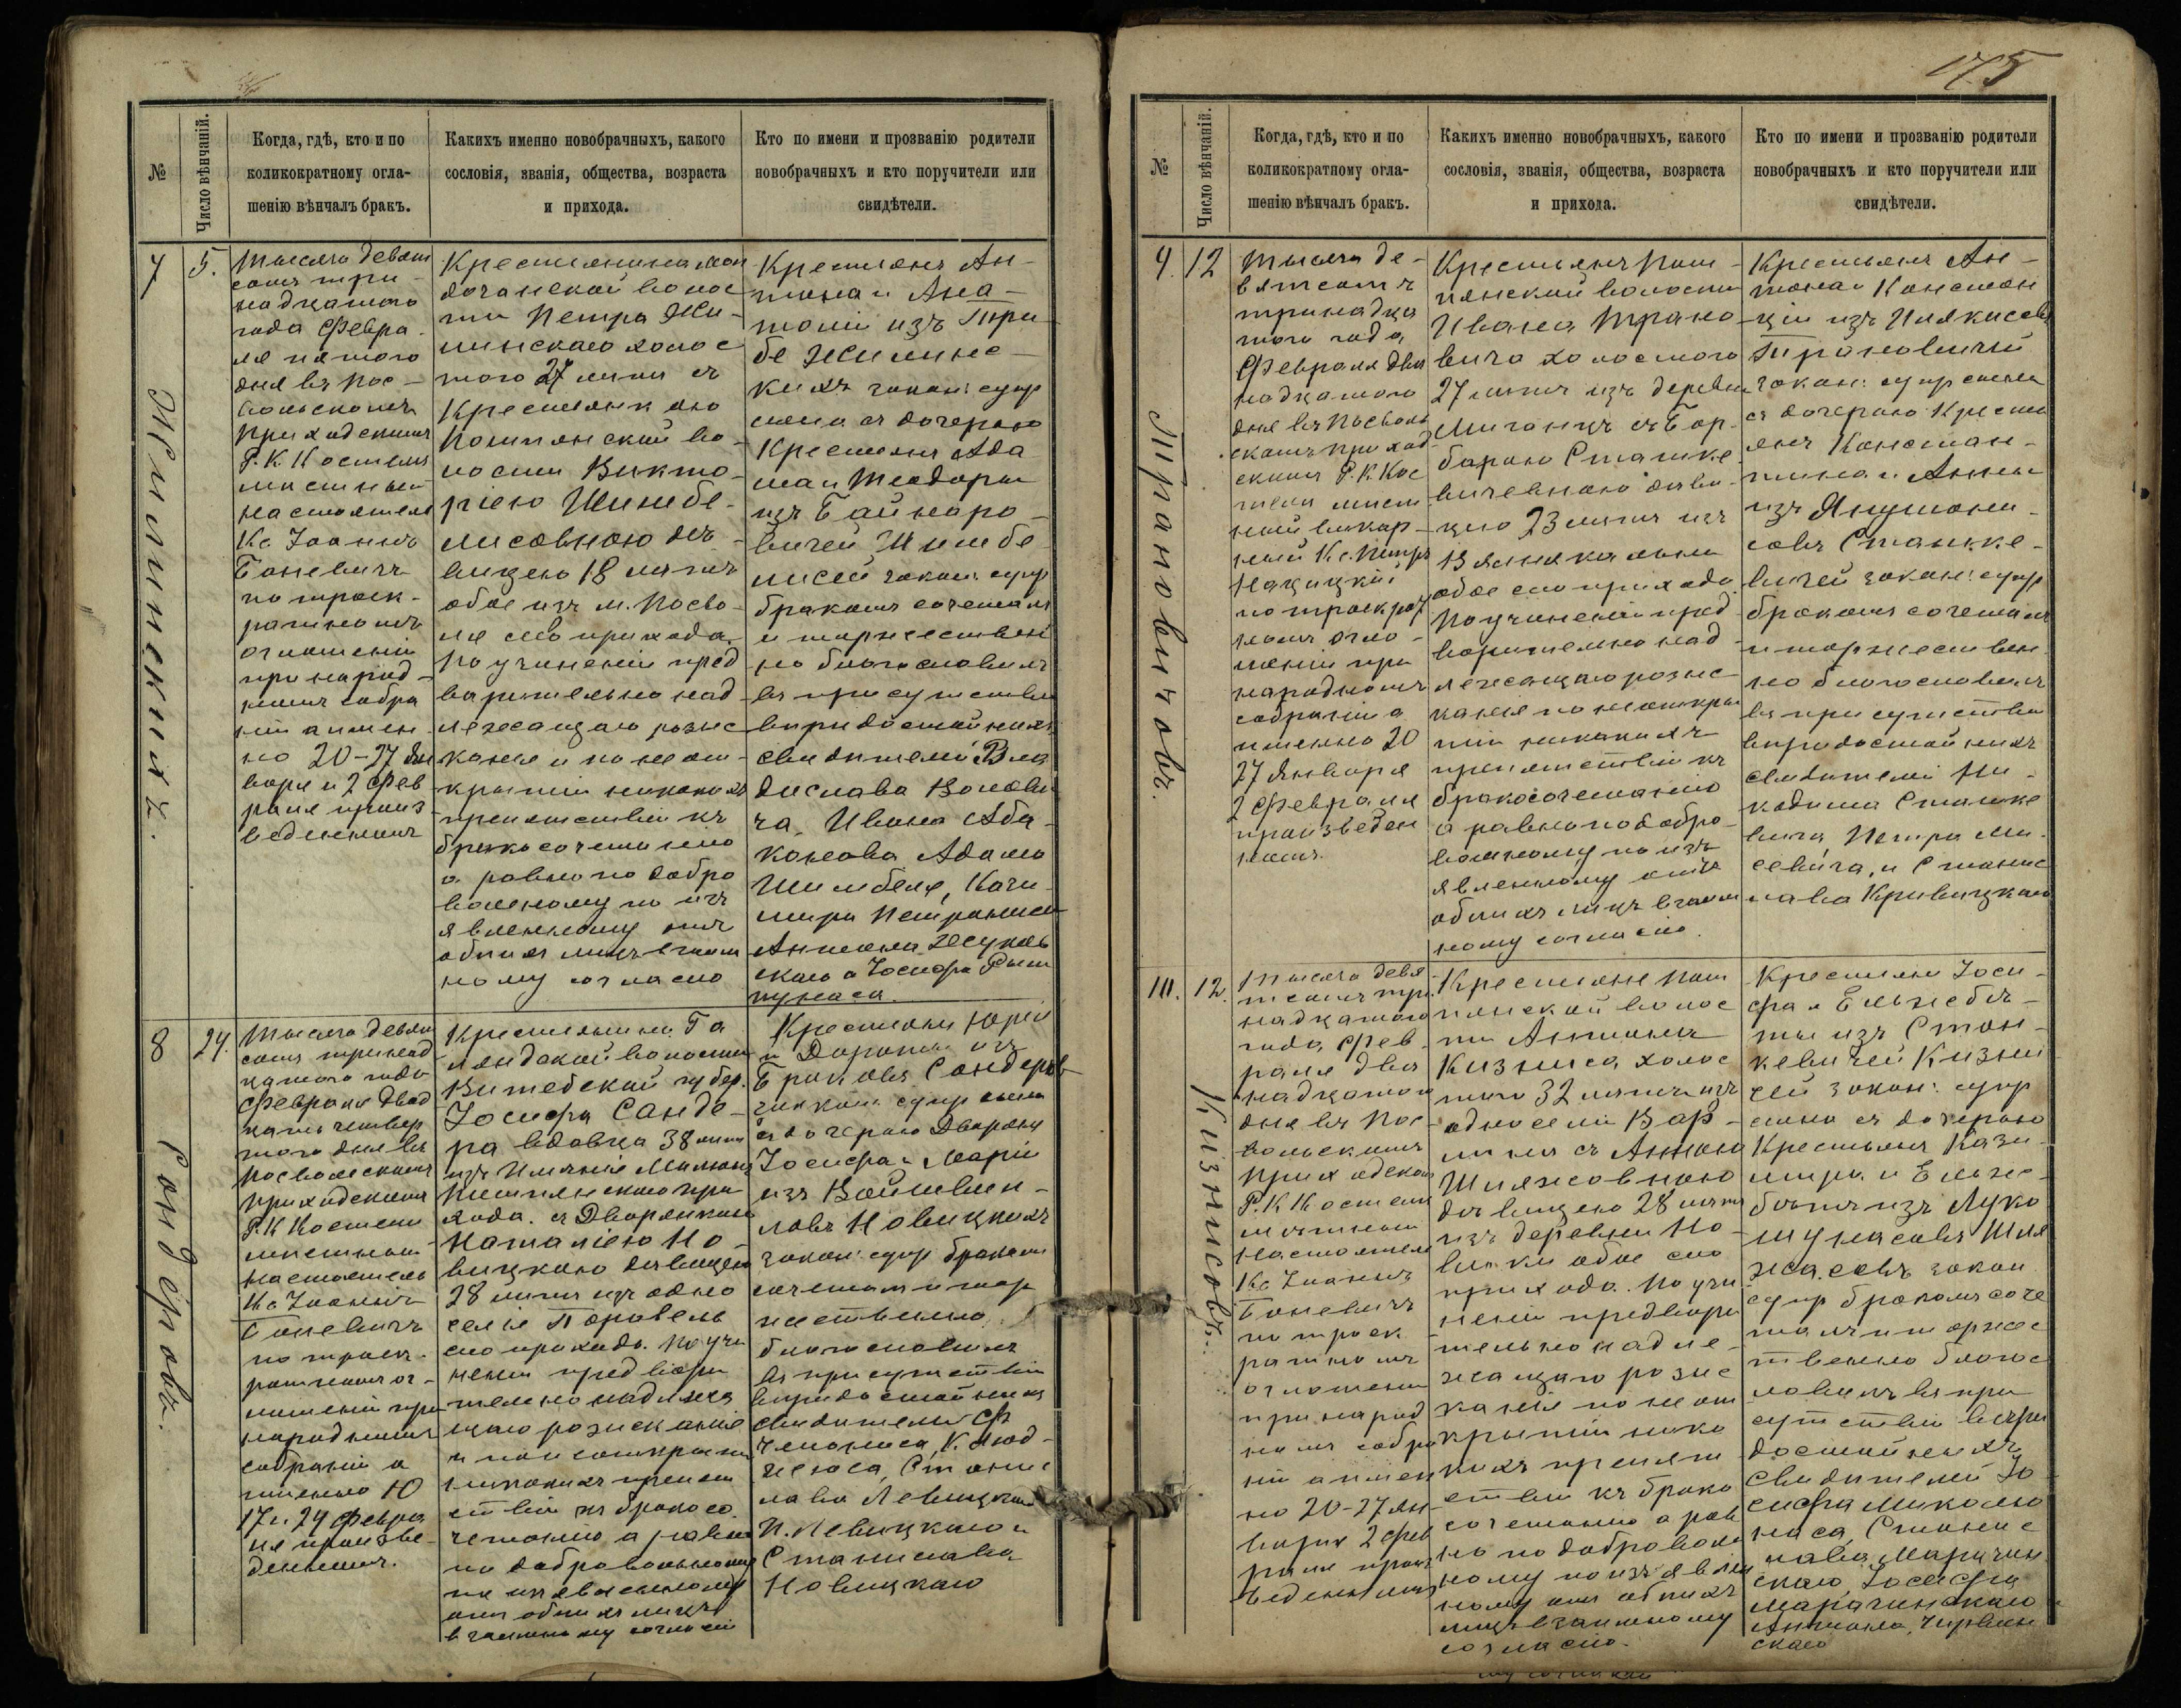 175
№
Число вѣнчаній.
Когда, гдѣ, кто и по
коликократному огла-
шенію вѣнчалъ бракъ.
Какихъ именно новобрачныхъ, какого
сословія, званія, общества, возраста
и прихода.
Кто по имени и прозванію родители
новобрачныхъ и кто поручители или
свидѣтели.
7
5.
Жилинскихъ.
Тысяча девять
сотъ три-
надцатого
года Февра-
ля пятого
дня въ Пос-
вольскомъ
приходскомъ
Р. К. Костелѣ
мѣстный
настоятель
Кс. Іоаннъ
Боневичъ
по троек-
ратномъ
оглашеніи
при народ-
номъ собра
ніи а имен
но 20-27 Ян
варя и 2 Фев
раля произ
веденномъ
Крестьянина
волос
ти Петра Жи-
линскаго холос
того 27 лѣтъ съ
Крестьянкою
во-
лости Викто-
ріею Шимбе-
лисовною дѣ-
вицею 18 лѣтъ
обое изъ м. Посво-
ля сего прихода.
По учиненіи пред
варительно над
лежащаго розыс
канія и по неот-
крытіи никакихъ
препятствій къ
бракосочетанію
а равно по добро
вольному по изъ
явленному ими
обоихъ лицъ взаим
ному согласію
Крестьянъ Ан-
тона и Ана-
толіи изъ
Жилинс-
кихъ закон: супр
сына съ дочерью
Крестьянъ Ада
ма и Теодоры
изъ Байноро-
вичей Шимбе
лисей закон: супр
бракомъ сочеталъ
и торжествен
но благословилъ
въ присутствіи
вѣридостойныхъ
свидѣтелей Вла
дислава
ча, Ивана Аба-
конова, Адама
Шимбеля, Кази-
мира
Антона
скаго и Іосифа
8
24.
Сондеровъ.
Тысяча девять
сотъ тринад
цатого года
Февраля двад
цать четвер
того дня въ
Посвольскомъ
приходскомъ
Р. К. Костелѣ
мѣстный
настоятель
Кс. Іоаннъ
Боневичъ
по троек-
ратномъ ог-
лашеніи при
народномъ
собраніи а
именно 10
17 и 24 Февра
ля произве-
денномъ.
Крестьянина
волости
Витебской губер.
Іосифа Санде-
ра вдовца 38 лѣтъ
изъ Имѣнія
при
хода. съ Дворянкою
Наталіею Но-
вицкою дѣвицею
28 лѣтъ изъ одно
селія
сего прихода. По учи
неніи предвари
тельно надлежа
щаго розысканія
и по неоткрытіи
никакихъ препят
ствій къ бракосо-
четанію а равно
по добровольному
по изъявленному
ими обоихъ лицъ
взаимному согласію
Крестьянъ Юрія
и Дороты изъ
Сондеров
закон: супр сына
съ дочерью Дворянъ
Іосифа и Маріи
изъ
Новицкихъ
закон: супр бракомъ
сочеталъ и тор
жественно
благословилъ
въ присутствіи
вѣридостойныхъ
свидѣтелей Ф.
К.
Станис
лава Левицкаго
И. Левицкаго и
Станислава
Новицкаго
№
Число вѣнчаній.
Когда, гдѣ, кто и по
коликократному огла-
шенію вѣнчалъ бракъ.
Какихъ именно новобрачныхъ, какого
сословія, званія, общества, возраста
и прихода.
Кто по имени и прозванію родители
новобрачныхъ и кто поручители или
свидѣтели.
9.
12
Трановичовъ.
Тысяча де-
вятсотъ
тринадца
того года
Февраля две
надцатого
дня въ Посволь
скомъ приход
скомъ Р. К. Кос
телѣ мѣст
ный викар-
ный Кс. Петръ
по троекрат
номъ огла-
шеніи при
народномъ
собраніи а
именно 20
27 Января
2 Февраля
произведен
номъ.
Крестьянъ
волости
Ивана Трано
вича холостого
27 лѣтъ изъ деревни
съ Вар-
барою Сташке
вичевною дѣви-
цею 23 лѣтъ изъ
обое сего прихода.
По учиненіи пред
варительно над
лежащаго розыс
канія по неоткры
тіи никакихъ
препятствій къ
бракосочетанію
а равно по добро-
вольному по изъ
явленному ими
обоихъ лицъ взаим
ному согласію.
Крестьянъ Ан-
тона и Констан
ціи изъ
Трановичей
закон: супр сына
съ дочерью Кресть
янъ Констан-
тина и Анны
изъ
Сташке-
вичей закон: супр
бракомъ сочеталъ
и торжествен
но благословилъ
въ присутствіи
вѣридостойныхъ
свидѣтелей Ни-
кодима Сташке
вича, Петра Ми-
севича, и Станис
лава Кривицкаго
10.
12.
Кизнисовъ.
Тысяча девя
тсотъ три
надцатого
года Фев-
раля две
надцатого
дня въ Пос-
вольскомъ
приходском
Р. К. Костелѣ
мѣстный
настоятель
Кс. Іоаннъ
Боневичъ
по троек
ратномъ
оглашеніи
при народ
номъ собра
ніи а имен
но 20-27 Ян
варя 2 Фев
раля произ
веденномъ
Крестьяне
волос
ти Антона
Кизниса холос
того 32 лѣтъ изъ
односелія
съ Анною
Шляжовною
дѣвицею 28 лѣтъ
изъ деревни Но-
обое сего
прихода. По учи
неніи предвари
тельно надле-
жащаго розыс
канія по неот
крытіи ника
кихъ препят
ствій къ брако
сочетанію а рав
но по доброволь
ному по изъявлен
ному ими обоихъ
лицъ взаимному
согласію.
Крестьянъ Іоси-
фа и Ельжбѣ-
ты изъ Стан-
кевичей Кизни
сей закон: супр
сына съ дочерью
Крестьянъ Кази-
мира и Ельже-
бѣты изъ Луко
Шля
жасовъ закон
супр бракомъ соче
талъ и торжес
твенно благос
ловилъ въ при
сутствіи вѣри
достойныхъ
свидѣтелей Іо
сифа Миколю
наса, Станис
лава
скаго, Іосифа
Антона
скаго